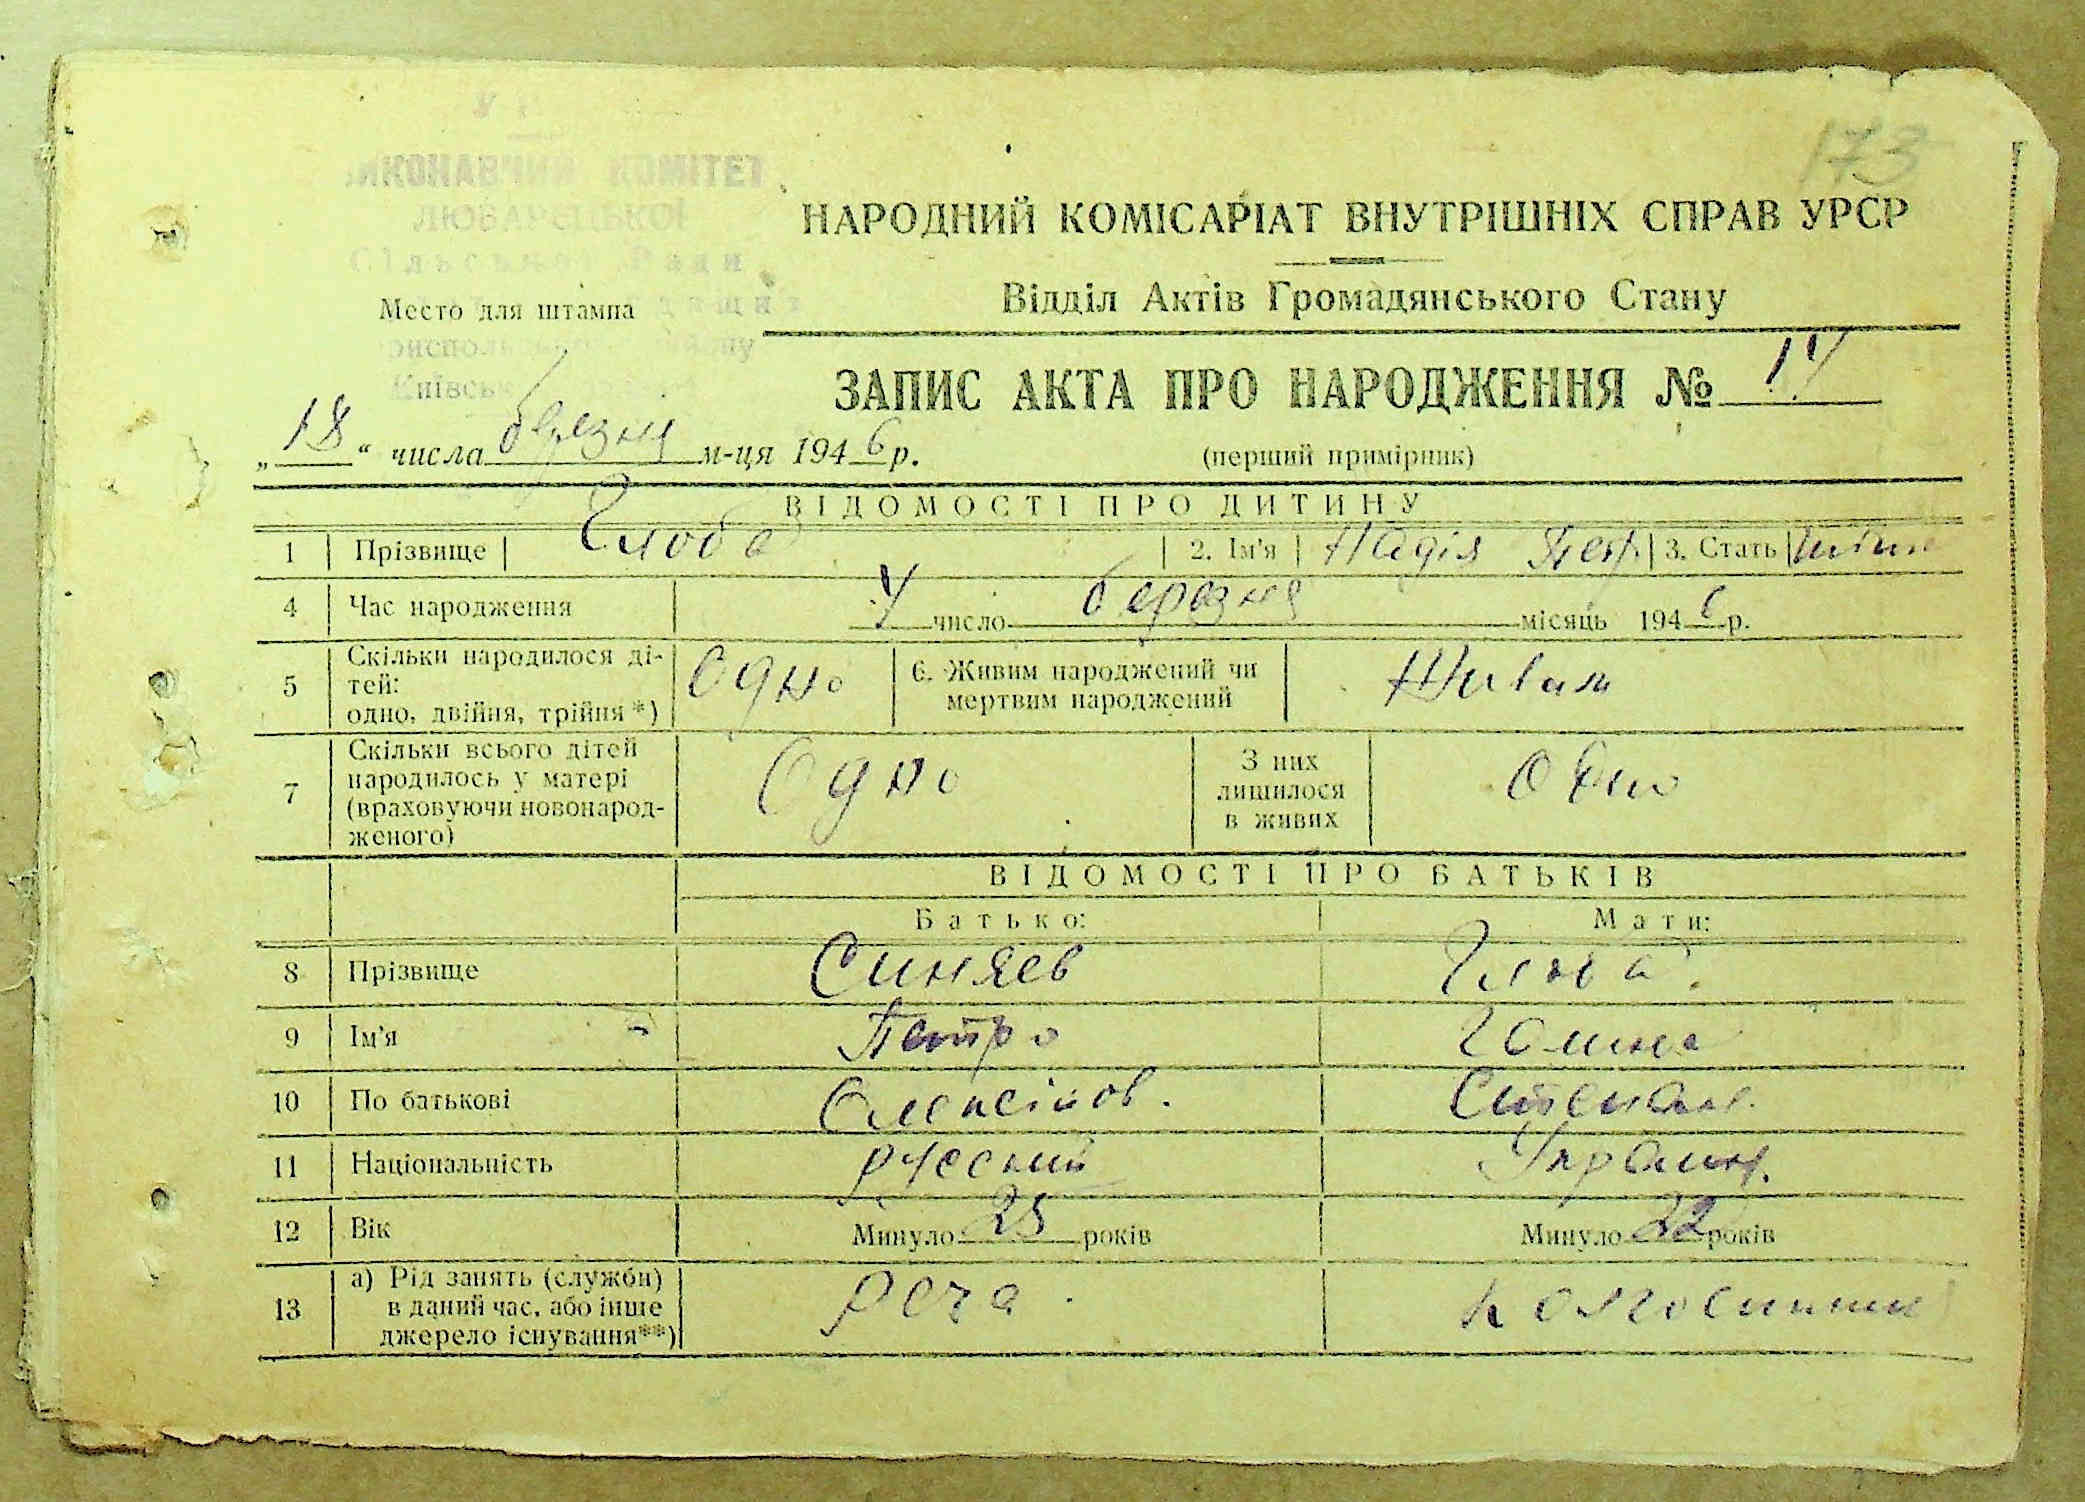 173
ВИКОНАВЧИЙ КОМІТЕТ
ЛЮБАРЕЦЬКОЇ
Сільської Ради
НАРОДНИЙ КОМІСАРІАТ ВНУТРІШНІХ СПРАВ УРСР
Відділ Актів Громадянського Стану
Место для штампа
ЗАПИС АКТА ПРО НАРОДЖЕННЯ №
„18“ числа березня м-ця 1946 р.
(перший примірник)
ВІДОМОСТІ ПРО ДИТИНУ
1 Прізвище Глоба 2. Ім'я Надія Петр. 3. Стать
4 Час народження число березня місяць 1946 р.
5 Скільки народилося ді-
тей:
одно, двійня, трійня *) Одно 6. Живим народжений чи
мертвим народжений Живим
7 Скільки всього дітей
народилось у матері
(враховуючи новонарод-
женого) Одно З них
лишилося
в живих Одно
ВІДОМОСТІ ПРО БАТЬКІВ
Батько: Мати:
8 Прізвище Синяев Глоба
9 Ім'я Петро Галина
10 По батькові Олексійов. Степан.
11 Національність русский Україн.
12 Вік Минуло 25 років Минуло 22 років
13 а) Рід занять (служби)
в даний час, або інше
джерело існування**)